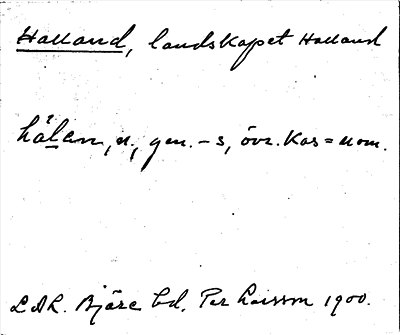 Halland, landskapet Halland
hålan, n., gen. -s, övr. kas = nom.
Bjäre hd. Per Larsson 1900.